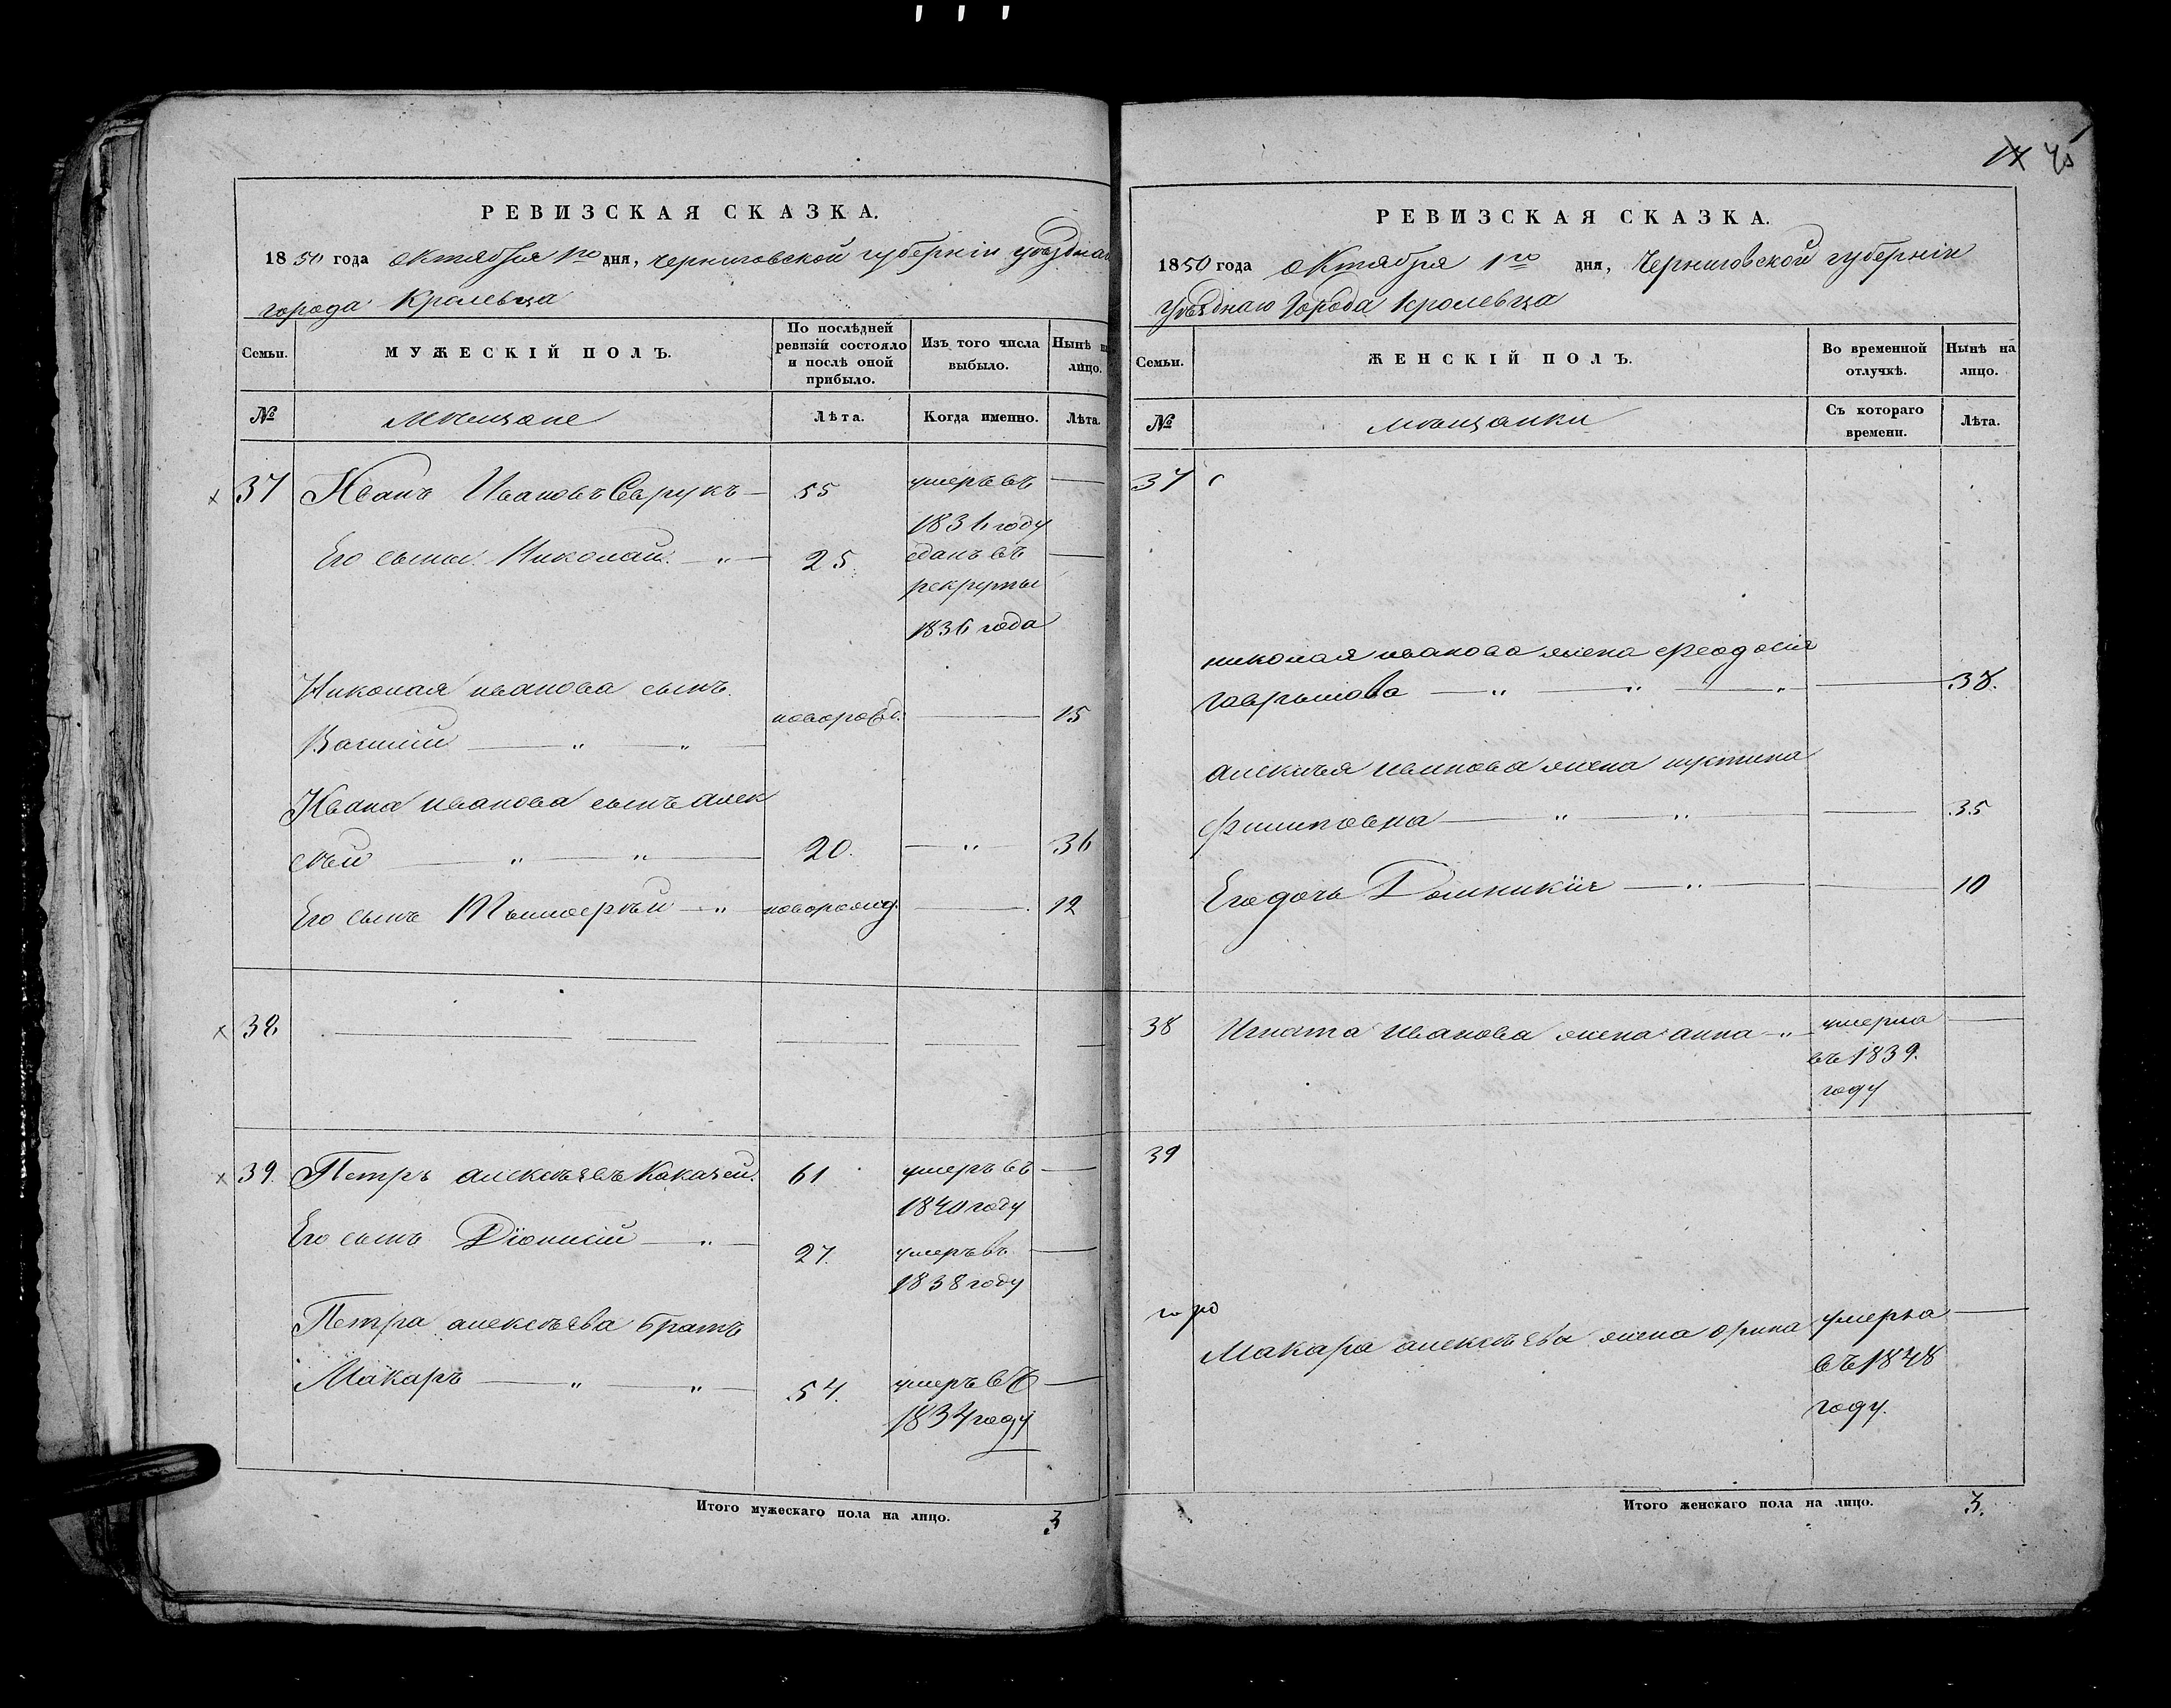 РЕВИЗСКАЯ СКАЗКА.
1850 года октября 1го дня, черниговской губерніи уѣзднаго
города Кролевца
Семьи.
МУЖЕСКІЙ ПОЛЪ.
По послѣдней ревизій состояло и послѣ оной прибыло.
Изъ того числа выбыло.
Нынѣ на лицо.
№
Мѣщане
Лѣта.
Когда именно.
Лѣта.
37 Иванъ Ивановъ 55 умеръ въ —
1836 году
Его сыны Николай 25 сданъ въ —
рекруты
1836 года
Николая иванова сынъ
Василій — новорожд. — 15
Ивана иванова сынъ алек
сѣй — 20. — 36
Его сынъ Тимоѳѣй — новорожд. — 12
38
39. Петръ алексѣевъ 61 умеръ въ —
1840 году
Его сынъ Діонисій — 27. умеръ въ —
1838 году
Петра алексѣева братъ
Макаръ — 54. умеръ въ —
1834 году
Итого мужескаго пола на лицо. 3
45
РЕВИЗСКАЯ СКАЗКА.
1850 года октября 1го дня, Черниговской губерніи
уѣзднаго Города Кролевца
Семьи.
ЖЕНСКІЙ ПОЛЪ.
Во временной отлучкѣ.
Нынѣ на лицо.
№
мѣщанки
Съ котораго времени.
Лѣта.
37
николая иванова жена феодосія
гаврилова — 38.
алексѣя иванова жена иустина
филиповна — 35
Его дочь Домникія — 10
38 Игната Иванова жена анна — умерла —
въ 1839.
году
39
Макара алексѣева жена орина умерла —
въ 1848
году.
Итого женскаго пола на лицо. 3.